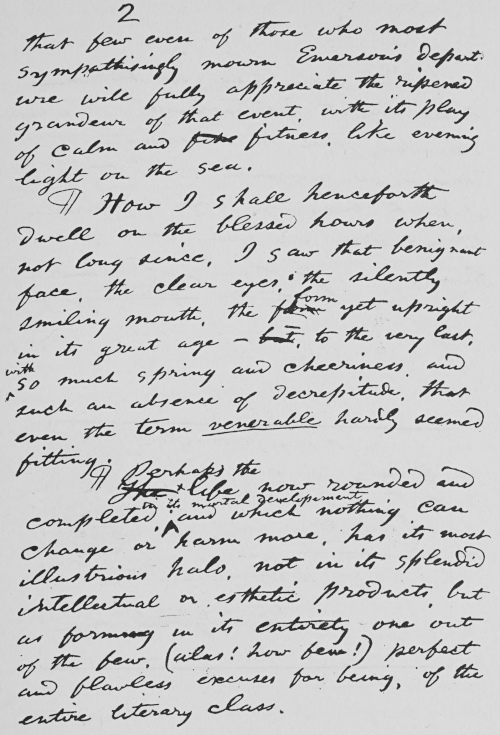 2
that few even of those who most
sympathisingly mourn Emerson's depart-
ure will fully appreciate the ripened
grandeur of that event, with its play
of calm and fitness, like evening
light on the sea.
¶ How I shall henceforth
dwell on the blessed hours when,
not long since, I saw that benignant
face, the clear eyes, the silently
smiling mouth, the form yet upright
in its great age – to the very last,
with so much spring and cheeriness, and
such an absence of decrepitude, that
even the term venerable hardly seemed
fitting.
¶ Perhaps the
life now rounded and
completed in its mortal developement, and which nothing can
change or harm more, has its most
illustrious halo, not in its splendid
intellectual or esthetic products, but
as forming in its entirety one out
of the few, (alas! how few!) perfect
and flawless excuses for being, of the
entire literary class.